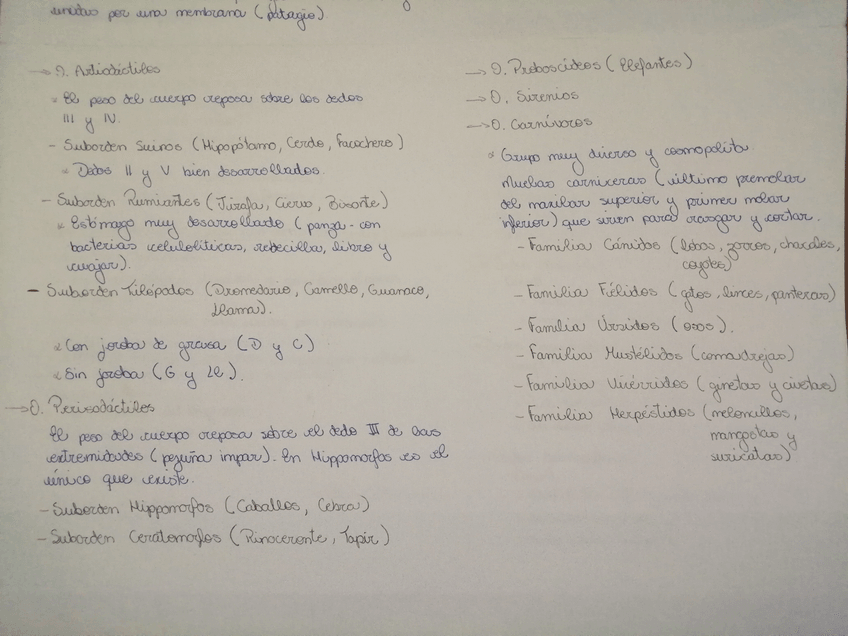 unidas por una membrana (patagio)
→ O. Artiodáctilos
* El peso del cuerpo reposa sobre los dedos
III y IV.
- Suborden Suinos (Hipopótamo, Cerdo, Facochero)
* Dedos II y V bien desarrollados.
- Suborden Rumiantes (Jirafa, Ciervo, Bisonte)
* Estómago muy desarrollado (panza - con
bacterias celulolíticas, redecilla, libro y
cuajar).
- Suborden Tilópodos (Dromedario, Camello, Guanaco,
Llama).
* Con joroba de grasa (D y C)
* Sin joroba (G y Ll).
→ O. Perisodáctilos
El peso del cuerpo reposa sobre el dedo III de las
extremidades (pezuña impar). En Hippomorfos es el
único que existe.
- Suborden Hippomorfos (Caballos, Cebra)
- Suborden Ceratomorfos (Rinoceronte, Tapir)
→ O. Proboscídeos (Elefantes)
→ O. Sirenios
→ O. Carnívoros
* Grupo muy diverso y cosmopolita.
Muelas carniceras (último premolar
del maxilar superior y primer molar
inferior) que sirven para rasgar y cortar.
- Familia Cánidos (lobos, zorros, chacales,
coyotes)
- Familia Félidos (gatos, linces, panteras)
- Familia Úrsidos (osos).
- Familia Mustélidos (comadrejas)
- Familia Vivérridos (ginetas y civetas)
- Familia Herpéstidos (meloncillos,
mangostas y
suricatas)